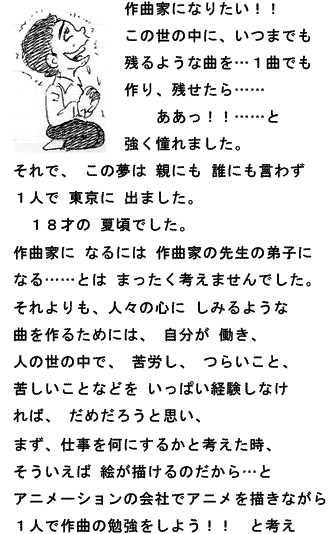 作曲家になりたい！！
この世の中に、いつまでも
残るような曲を…１曲でも
作り、残せたら……
ああっ！！……と
強く憧れました。
それで、 この夢は 親にも 誰にも言わず
１人で 東京に 出ました。
１８才の 夏頃でした。
作曲家に なるには 作曲家の先生の弟子に
なる……とは まったく考えませんでした。
それよりも、人々の心に しみるような
曲を作るためには、 自分が 働き、
人の世の中で、 苦労し、 つらいこと、
苦しいことなどを いっぱい経験しなけ
れば、 だめだろうと思い、
まず、仕事を何にするかと考えた時、
そういえば 絵が描けるのだから…と
アニメーションの会社でアニメを描きながら
１人で作曲の勉強をしよう！！ と考え